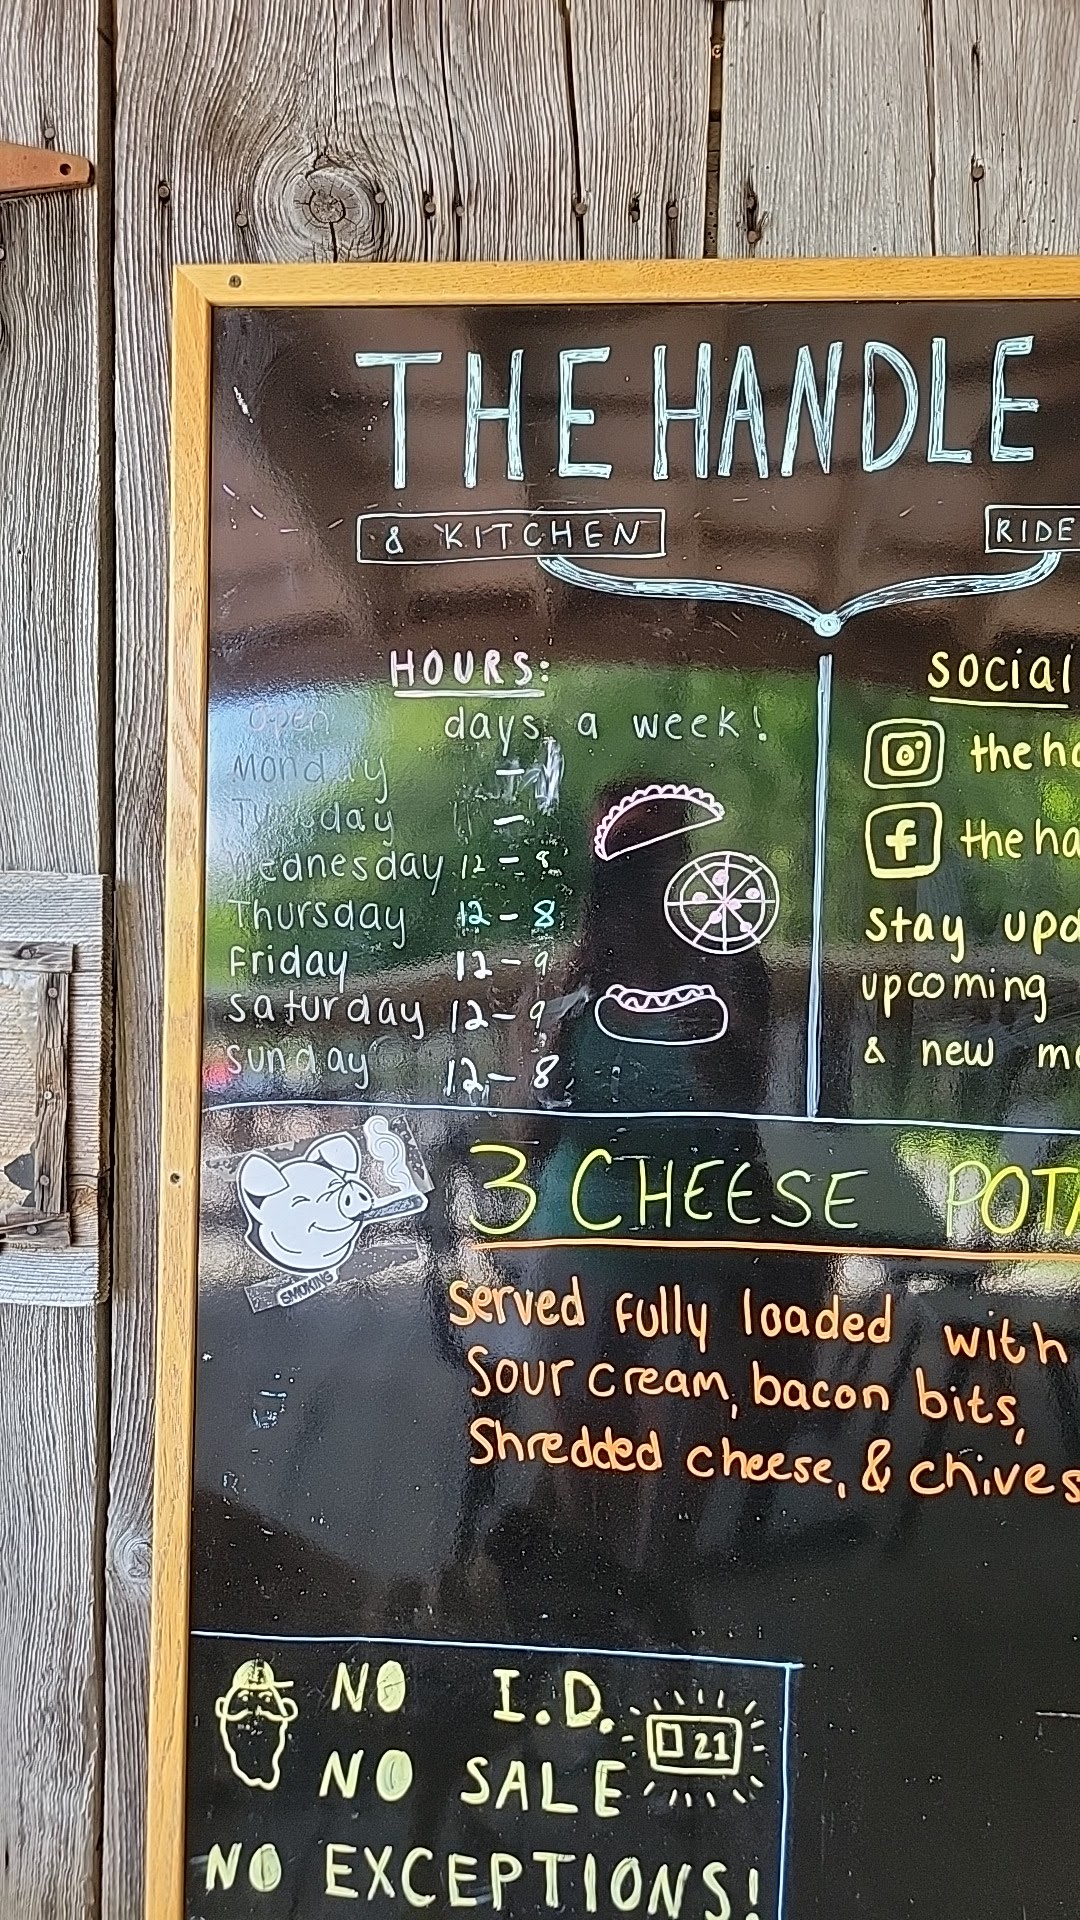 THE HANDLE
& KITCHEN
RIDE
HOURS:
open days a week!
Monday -
Tuesday -
Wednesday 12-8
Thursday 12-8
Friday 12-9
Saturday 12-9
Sunday 12-8
social
theha
f theha
stay upd
upcoming
& new m
3 CHEESE POTA
SMOKING
Served fully loaded with
Sour cream, bacon bits,
Shredded cheese, & chives
NO I.D.
21
NO SALE
NO EXCEPTIONS!